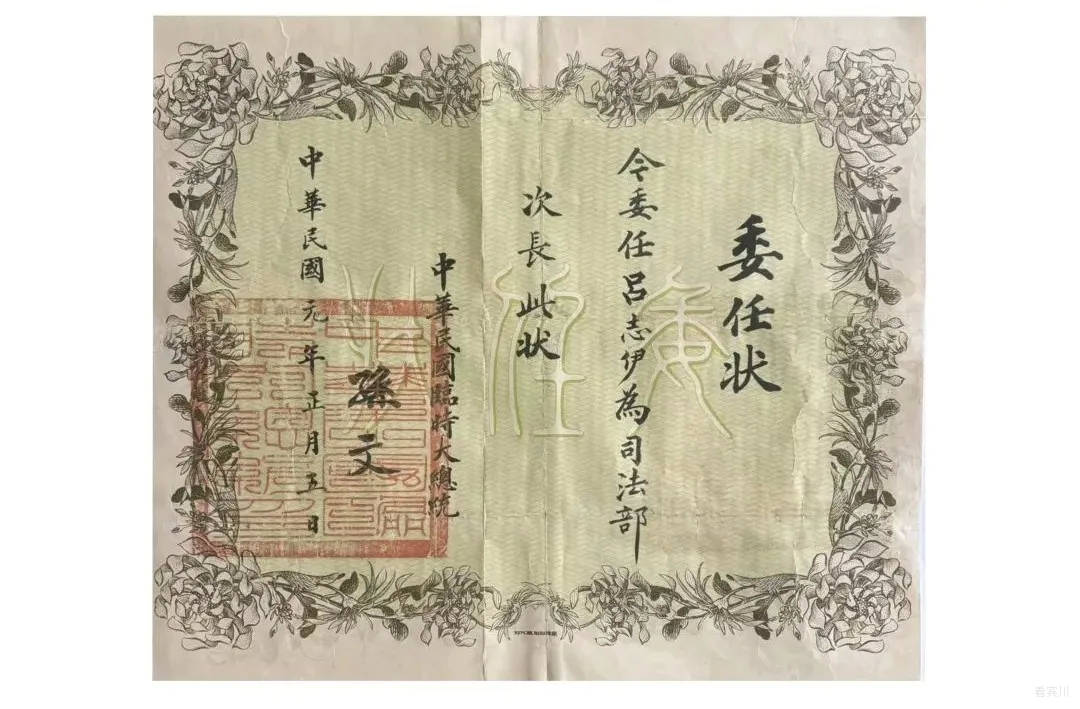 委任状
令委任呂志伊為司法部
次長此状
中華民國臨時大總統
孫文
中華民國元年正月五日
委任状
看宾川